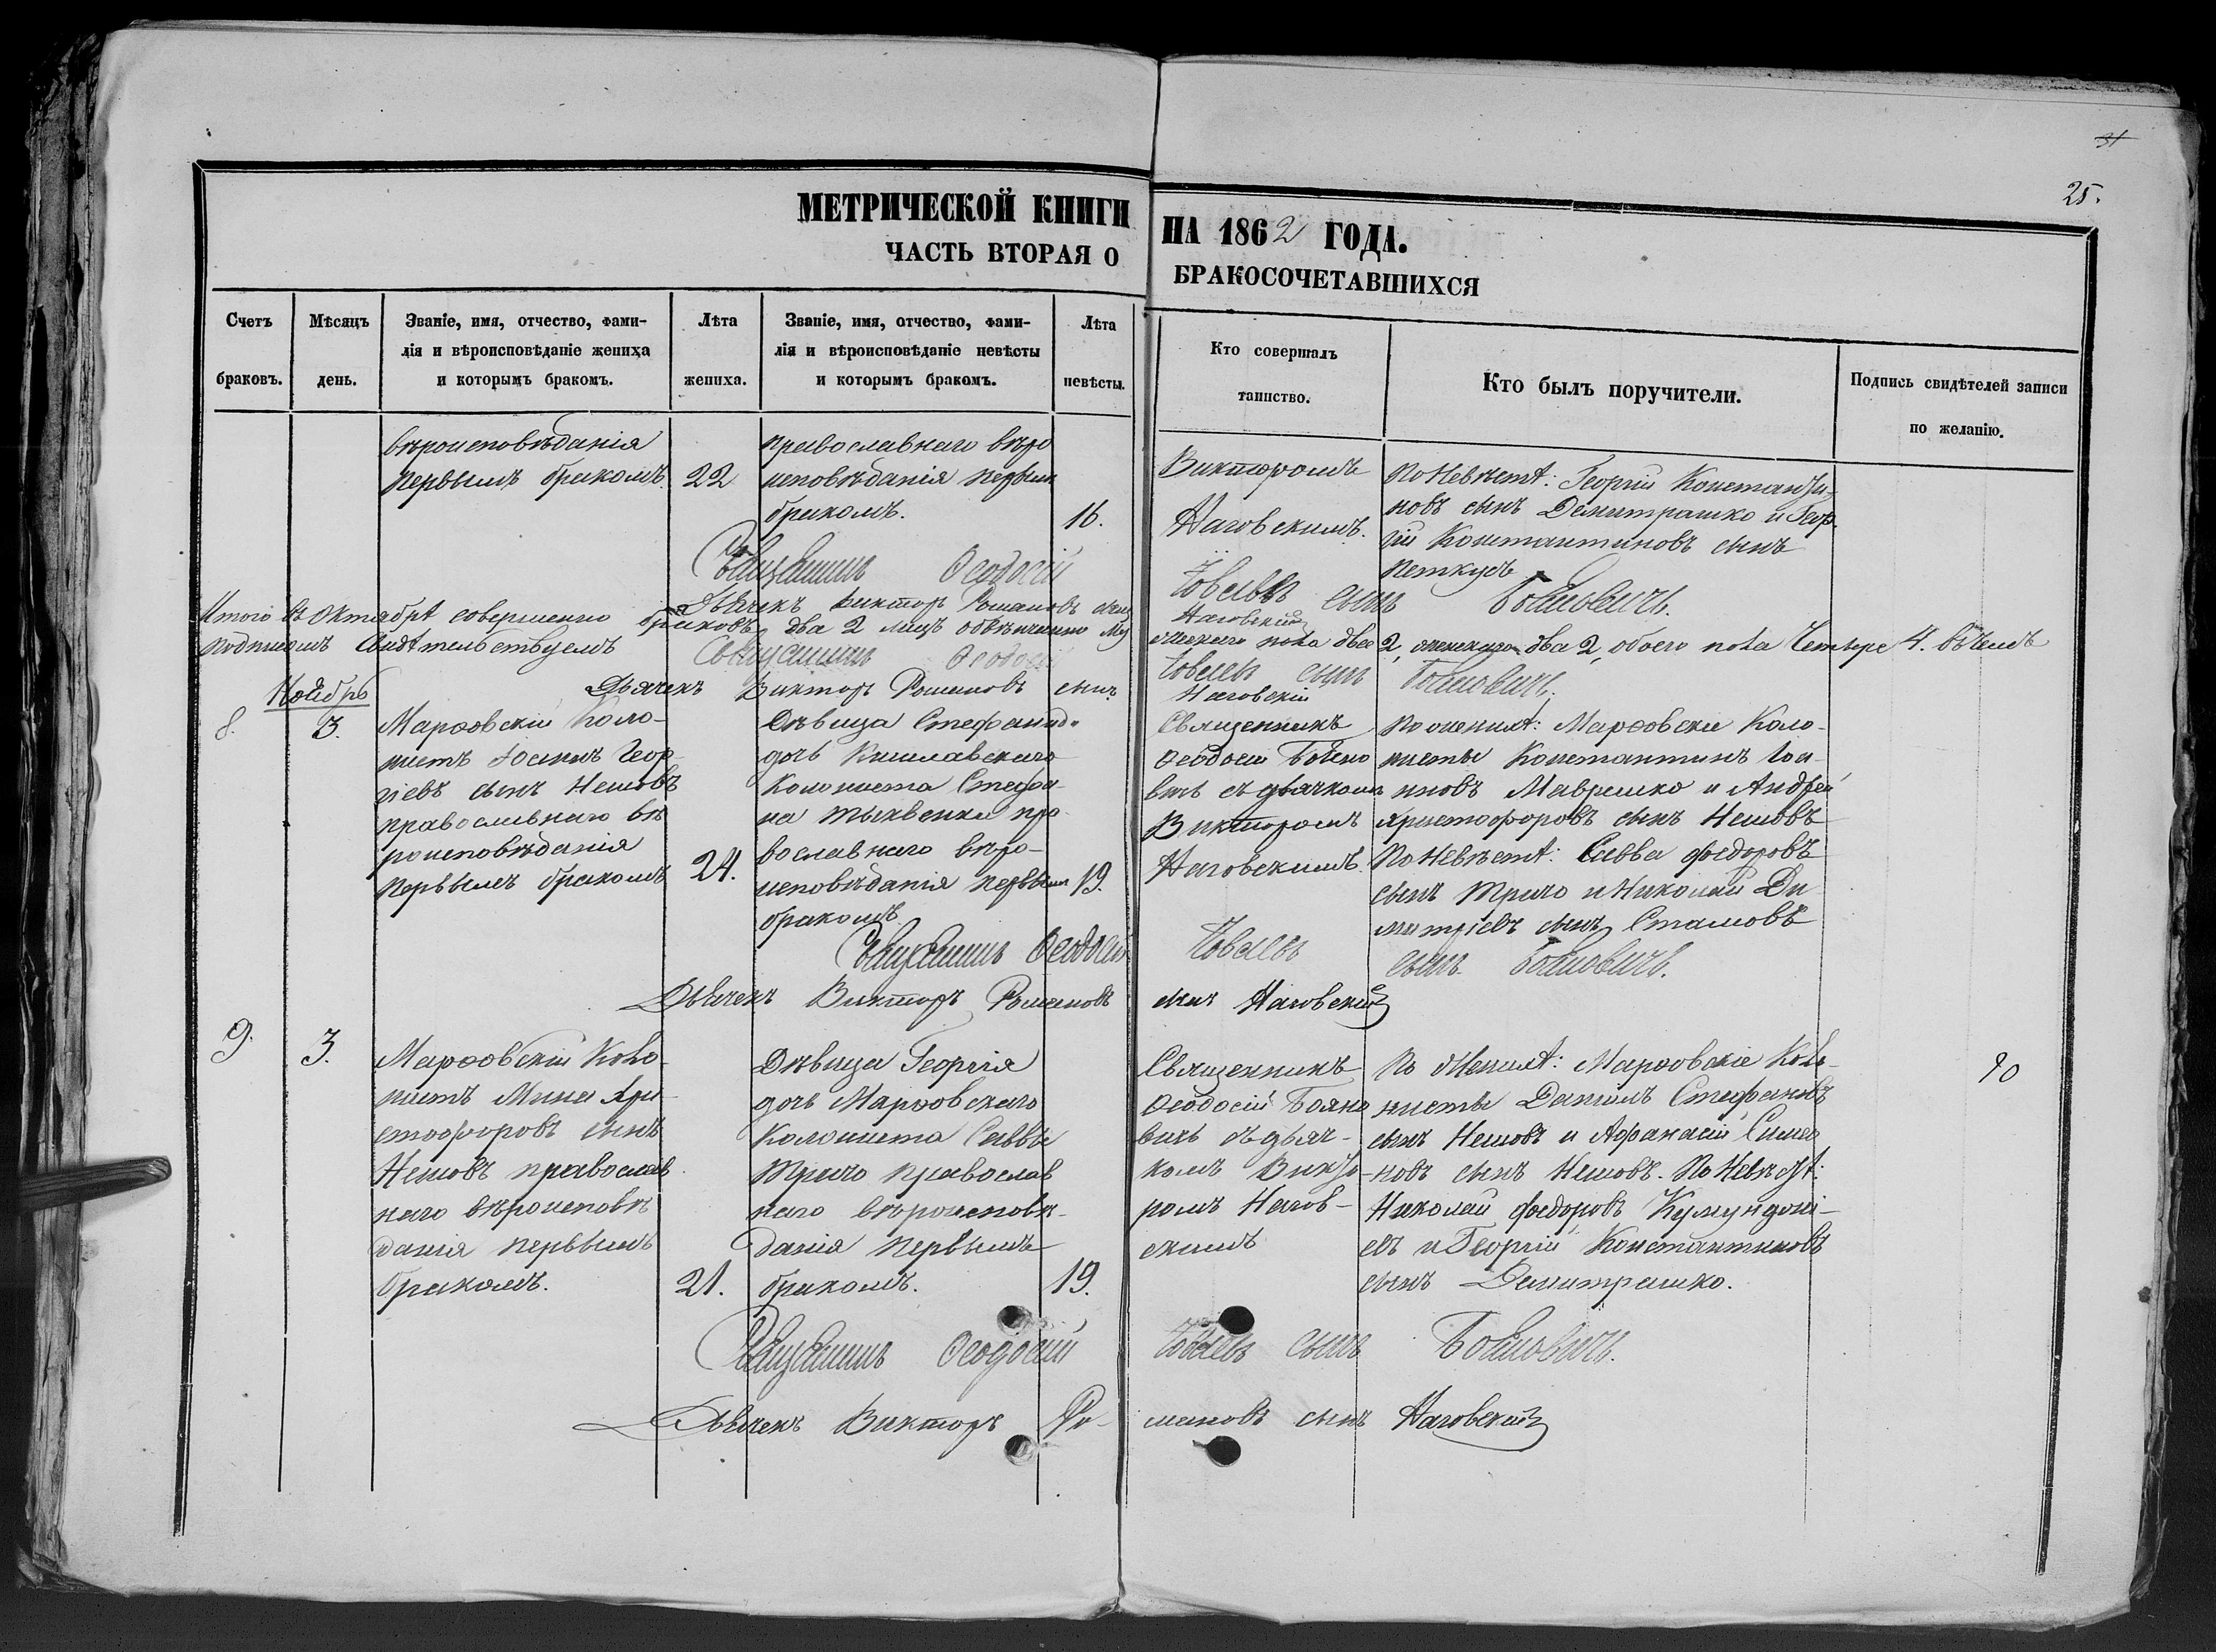 31
25.
МЕТРИЧЕСКОЙ КНИГИ НА 1862 ГОДА.
ЧАСТЬ ВТОРАЯ О БРАКОСОЧЕТАВШИХСЯ
Счетъ браковъ.
Мѣсяцъ день.
Званіе, имя, отчество, фами-
лія и вѣроисповѣданіе жениха
и которымъ бракомъ.
Лѣта жениха.
Званіе, имя, отчество, фами-
лія и вѣроисповѣданіе невѣсты
и которымъ бракомъ.
Лѣта невѣсты.
Кто совершалъ
таинство.
Кто былъ поручители.
Подпись свидѣтелей записи
по желанію.
вѣроисповѣданія
первымъ бракомъ.
22
православнаго вѣро
исповѣданія первым
бракомъ.
16.
Викторомъ
Наговскимъ.
По невѣстѣ: Георгій Константи-
новъ сынъ Демитрашко и Геор-
гій Константиновъ сынъ
Петкудъ
Священникъ Ѳеодосій Іовлевъ сынъ Бояновичъ.
Дьячекъ Викторъ Романовъ сынъ Наговскій
Итого въ Октябрѣ совершенно браковъ два 2 лицъ обвѣнчанно му
жескаго пола два 2, женскаго два 2, обоего пола четыре 4. въ чемъ
подписомъ свидѣтельствуемъ
Священникъ Ѳеодосій Іовлевъ сынъ Бояновичъ.
Дьячекъ Викторъ Романовъ сынъ Наговскій
Ноябрь
8.
3.
Марѳовскій Коло-
нистъ Іосифъ Геор-
гіевъ сынъ Нешовъ
православнаго вѣ
роисповѣданія
первымъ бракомъ
24.
Дѣвица Стефанида
дочь Кишлавскаго
Колониста Стефа-
на Тыквенка пра-
вославнаго вѣро-
исповѣданія первым
бракомъ
19.
Священникъ
Ѳеодосій Бояно
вичъ съ дьячкомъ
Викторомъ
Наговскимъ.
По женихѣ: Марѳовскіе Коло-
нисты Константинъ Іоа-
нновъ Маврешко и Андрей
Христофоровъ сынъ Нешовъ
По невѣстѣ: Савва Федоровъ
сынъ Тричо и Николай Ди
митріевъ сынъ Стамовъ
Священникъ Ѳеодосій Іовлевъ сынъ Бояновичъ.
Дьячекъ Викторъ Романовъ сынъ Наговскій
9.
3.
Марѳовскій Коло-
нистъ Мина Хри-
стофоровъ сынъ
Нешовъ православ
наго вѣроисповѣ
данія первымъ
бракомъ.
21.
Дѣвица Георгія
дочь Марѳовскаго
Колониста Саввы
Тричо православ
наго вѣроисповѣ-
данія первымъ
бракомъ.
19.
Священникъ
Ѳеодосій Бояно
вичъ съ дьяч-
комъ Викто-
ромъ Нагов-
скимъ
По женихѣ: Марѳовскіе Коло-
нисты Даніилъ Стефановъ
сынъ Нешовъ и Афанасій Симео
новъ сынъ Нешовъ. По невѣстѣ:
Николай Федоровъ
и Георгій Константиновъ
сынъ Демитрашко.
Священникъ Ѳеодосій Іовлевъ сынъ Бояновичъ.
Дьячекъ Викторъ Ро-мановъ сынъ Наговскій